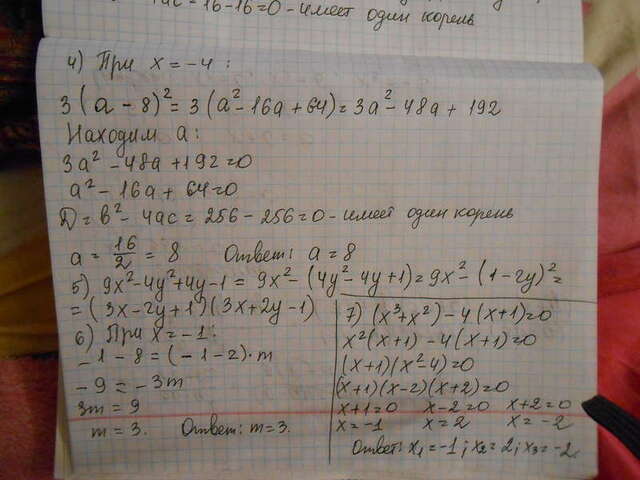 4ac = 16-16=0 - имеет один корень
4) При x = -4 :
3(a - 8)² = 3(a² - 16a + 64) = 3a² - 48a + 192
Находим a:
3a² - 48a + 192 = 0
a² - 16a + 64 = 0
D = b² - 4ac = 256 - 256 = 0 - имеет один корень
a = 16/2 = 8 Ответ: a = 8
5) 9x² - 4y² + 4y - 1 = 9x² - (4y² - 4y + 1) = 9x² - (1 - 2y)² =
= (3x - 2y + 1)(3x + 2y - 1)
6) При x = -1:
-1 - 8 = (-1 - 2)·m
-9 = -3m
3m = 9
m = 3. Ответ: m = 3.
7) (x³ + x²) - 4(x + 1) = 0
x²(x + 1) - 4(x + 1) = 0
(x + 1)(x² - 4) = 0
(x + 1)(x - 2)(x + 2) = 0
x + 1 = 0 x - 2 = 0 x + 2 = 0
x = -1 x = 2 x = -2
Ответ: x₁ = -1; x₂ = 2; x₃ = -2.